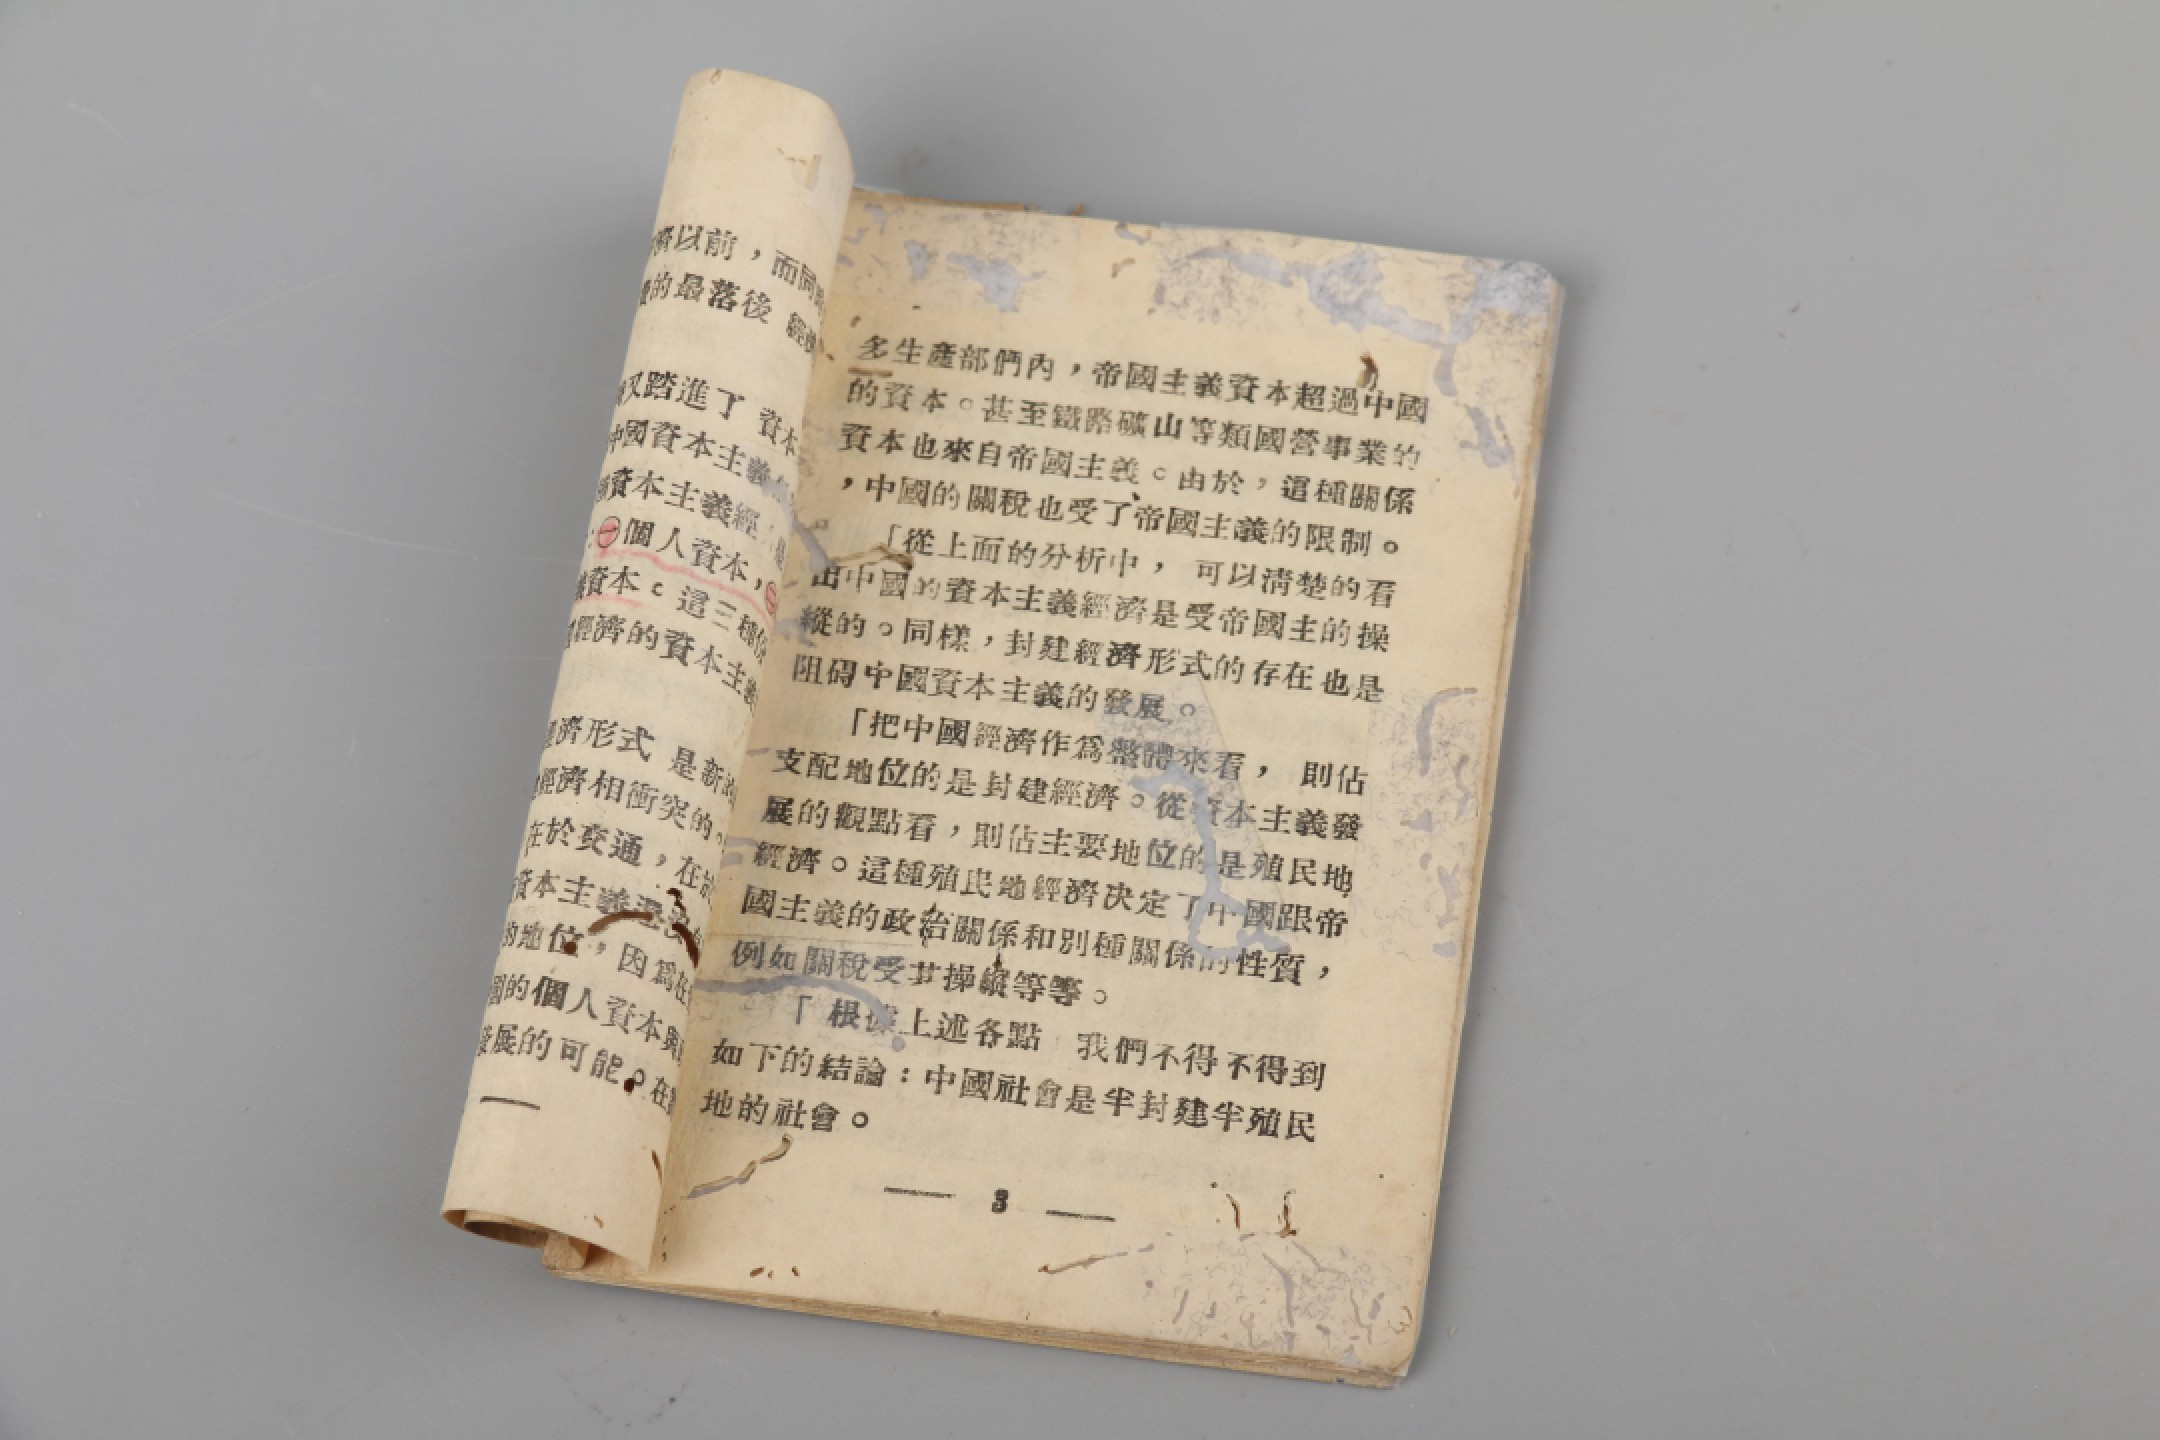 濟以前，而同
的最落後 經
又踏進了 資本
中國資本主義
資本主義經
㊀個人資本，㊁
資本。這三種
經濟的資本主義
濟形式 是新
經濟相衝突的。
在於交通，在
資本主義
的地位，因爲在
國的個人資本與
發展的可能。在
多生產部們內，帝國主義資本超過中國
的資本。甚至鐵路礦山等類國營事業的
資本也來自帝國主義。由於，這種關係
，中國的關稅也受了帝國主義的限制。
「從上面的分析中， 可以清楚的看
出中國的資本主義經濟是受帝國主的操
縱的。同樣，封建經濟形式的存在也是
阻碍中國資本主義的發展。
「把中國經濟作爲整體來看， 則佔
支配地位的是封建經濟。從資本主義發
展的觀點看，則佔主要地位的是殖民地
經濟。這種殖民地經濟决定了中國跟帝
國主義的政治關係和別種關係的性質，
例如關稅受其操縱等等。
「根據上述各點 我們不得不得到
如下的結論：中國社會是半封建半殖民
地的社會。
— 3 —